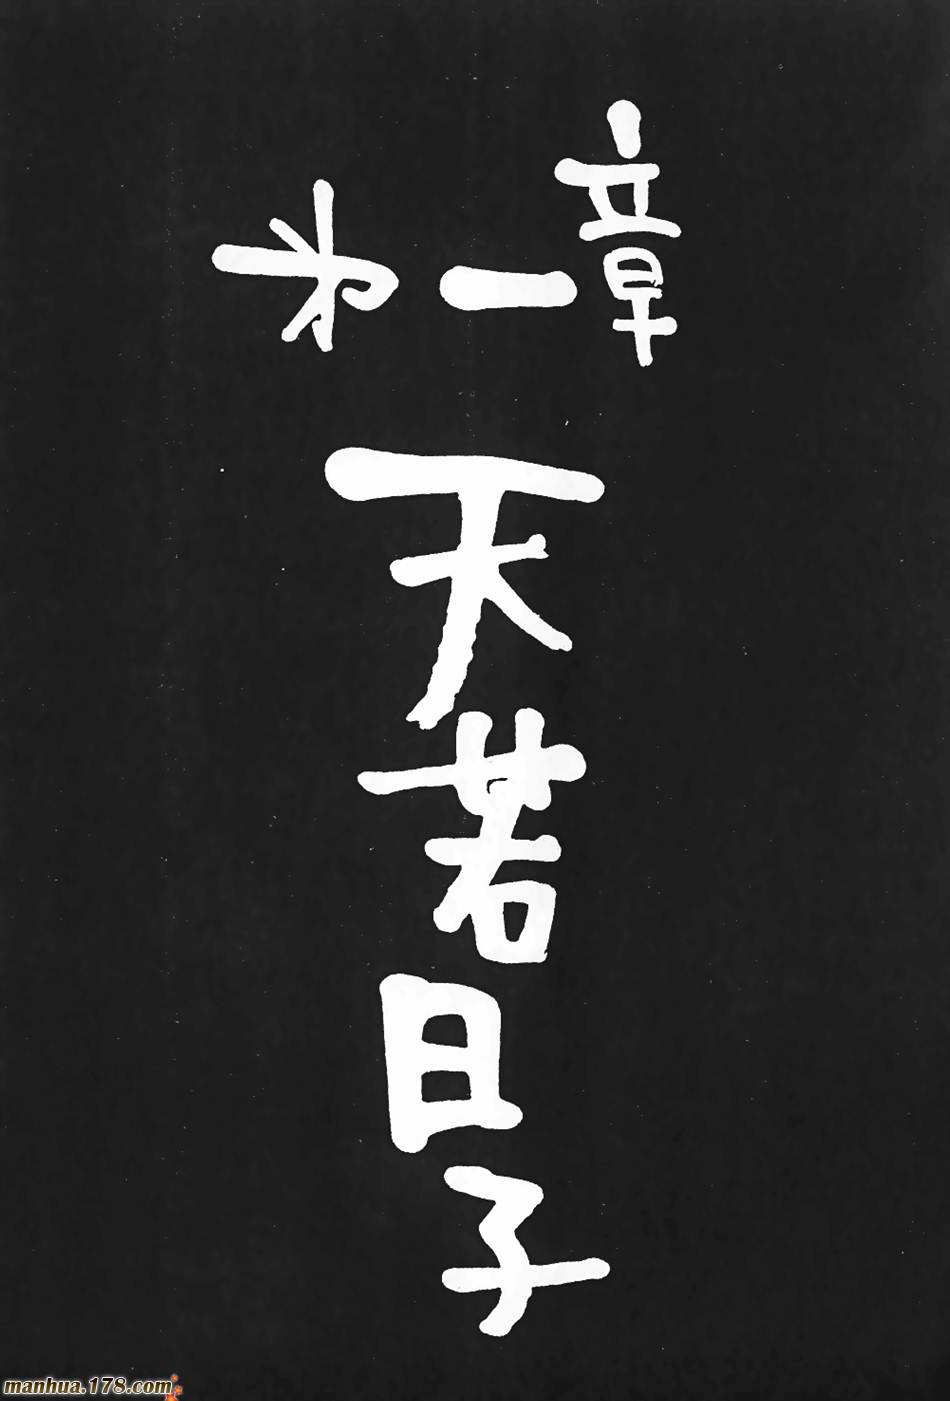 第一章
天若日子
manhua.178.com